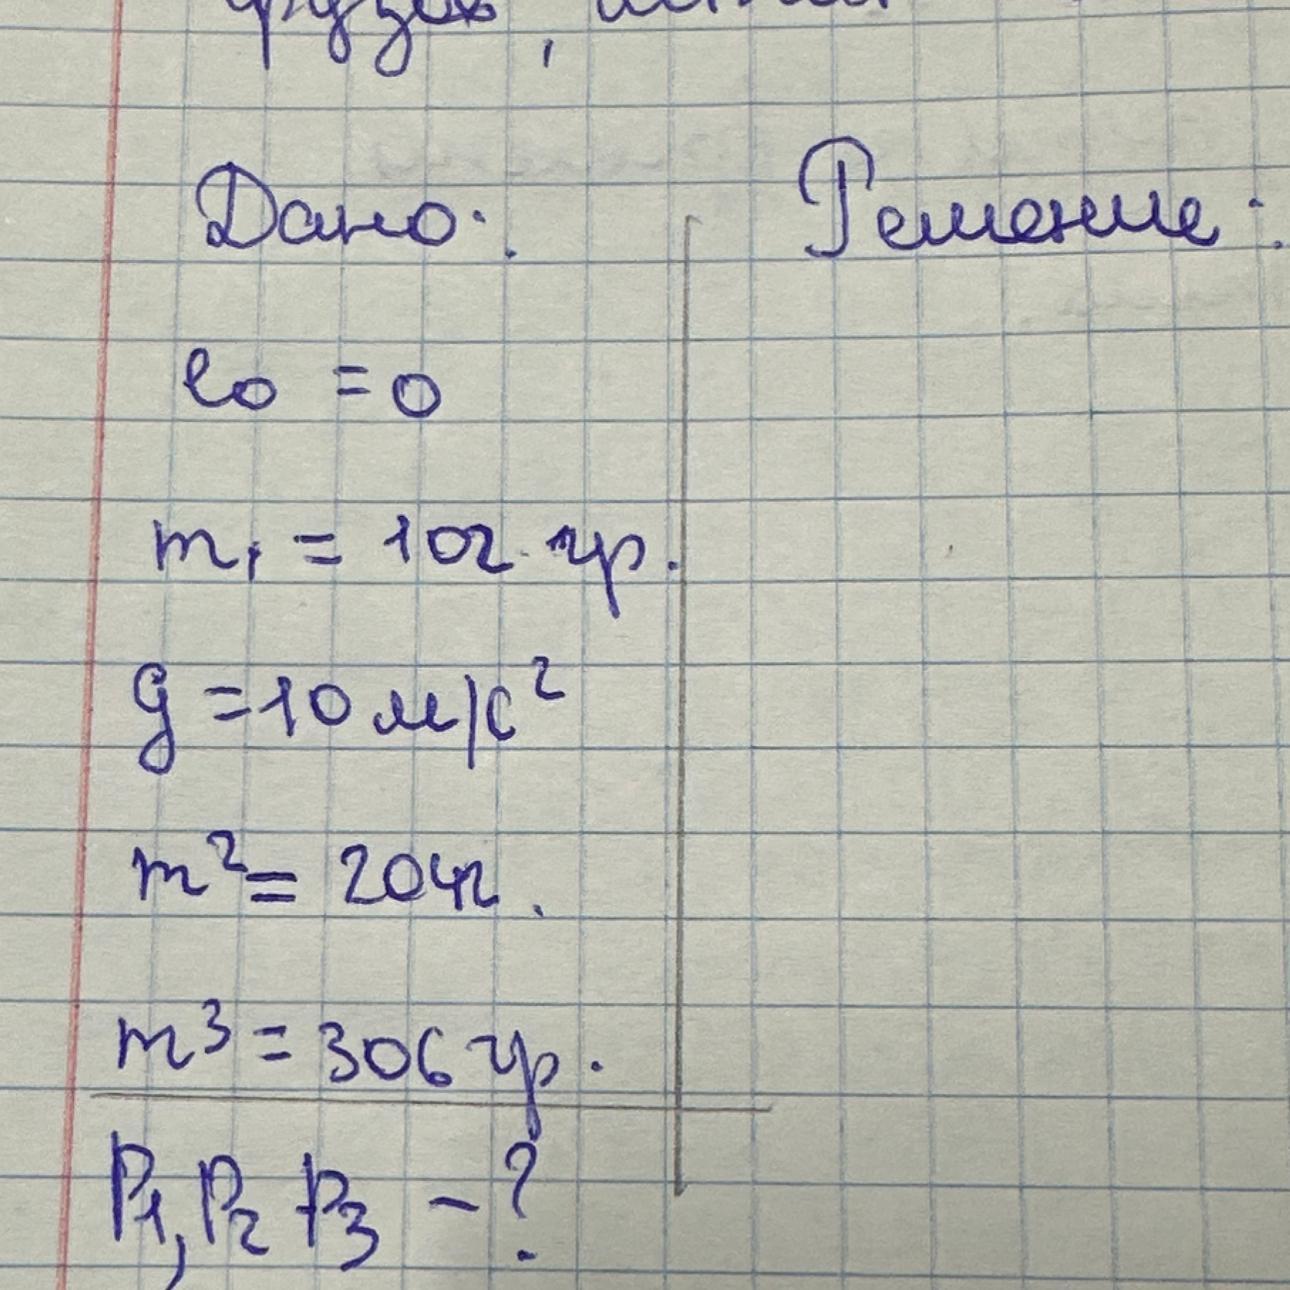 Дано:
Решение:
l0 = 0
m1 = 102 гр.
g = 10 м/с²
m² = 204г.
m³ = 306 гр.
P1, P2 P3 - ?